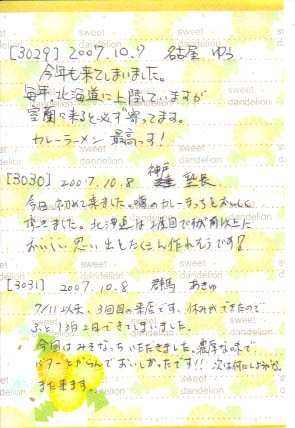 [3029] 2007.10.7 名古屋 ゆう
今年も来てしまいました。
毎年北海道に上陸していますが
室蘭に来ると必ず寄ってます。
カレーラーメン 最高っす!
[3030] 2007.10.8 神戸 塾長
今日初めて来ました。噂のカレーらーめん
北海道は2度目で前以上に
おいしい思い出をたくさん作れそうです!
[3031] 2007.10.8 群馬 あきゆ
7/11以来、3回目の来店です。休みができたので
1泊2日できてしまいました。
今回はみそをいただきました。濃厚な味で
バターとからんでおいしかったです!! 次は何にしようかな。
また来ます。
sweet dandelion